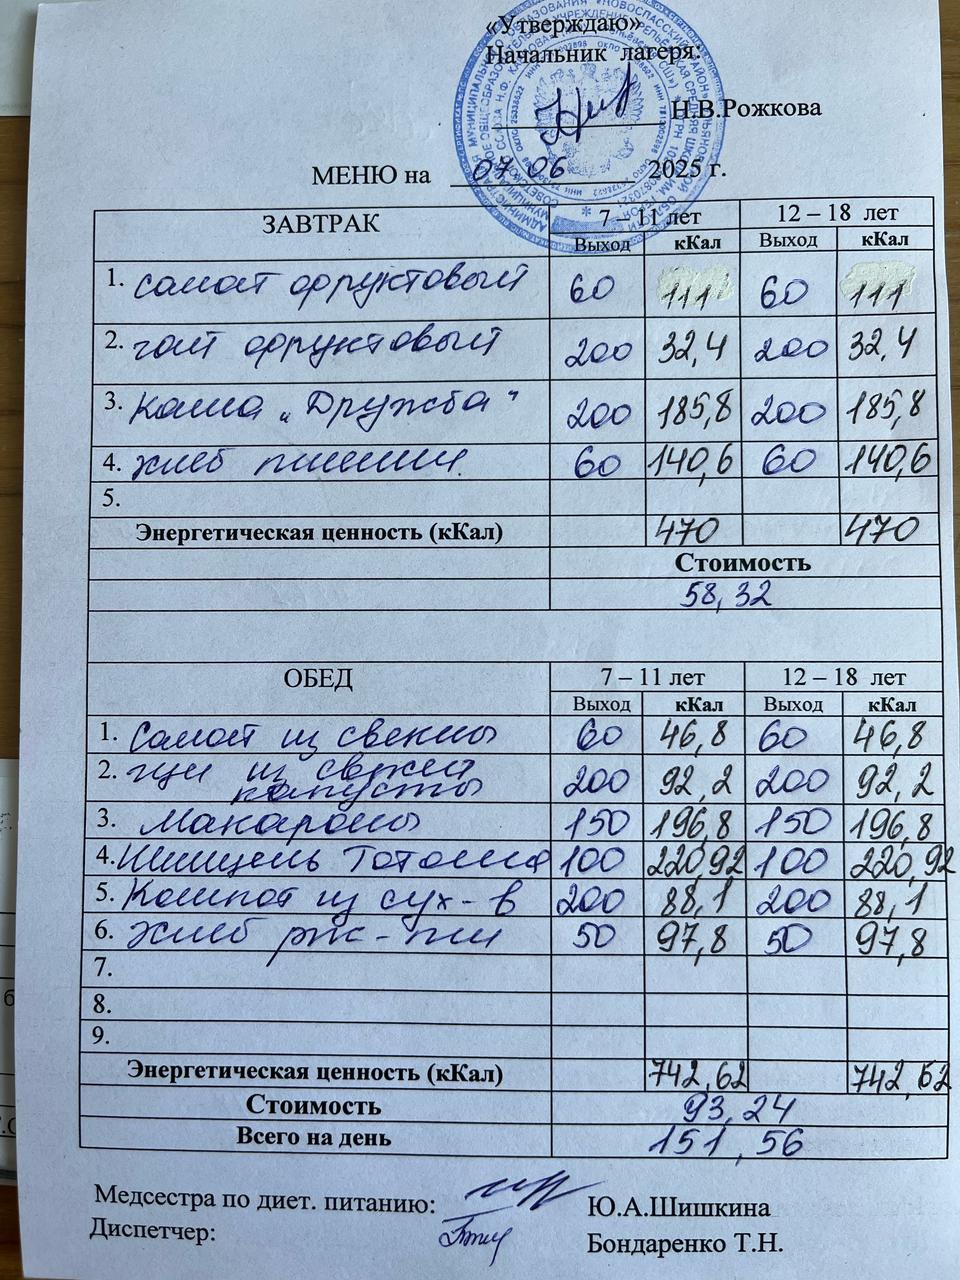 «Утверждаю»
Начальник лагеря:
Н.В.Рожкова
МЕНЮ на 07 06 2025 г.
ЗАВТРАК 7 – 11 лет 12 – 18 лет
Выход кКал Выход кКал
1. салат фруктовый 60 111 60 111
2. чай фруктовый 200 32,4 200 32,4
3. Каша „Дружба" 200 185,8 200 185,8
4. хлеб пшенич. 60 140,6 60 140,6
5.
Энергетическая ценность (кКал) 470 470
Стоимость
58,32
ОБЕД 7 – 11 лет 12 – 18 лет
Выход кКал Выход кКал
1. Салат из свеклы 60 46,8 60 46,8
2. щи из свежей 200 92,2 200 92,2
капусты
3. Макароны 150 196,8 150 196,8
4. Шницель 100 220,92 100 220,92
5. Компот из сух-в 200 88,1 200 88,1
6. Хлеб рж-пш 50 97,8 50 97,8
7.
8.
9.
Энергетическая ценность (кКал) 742,62 742,62
Стоимость 93,24
Всего на день 151,56
Медсестра по диет. питанию: Ю.А.Шишкина
Диспетчер: Бондаренко Т.Н.